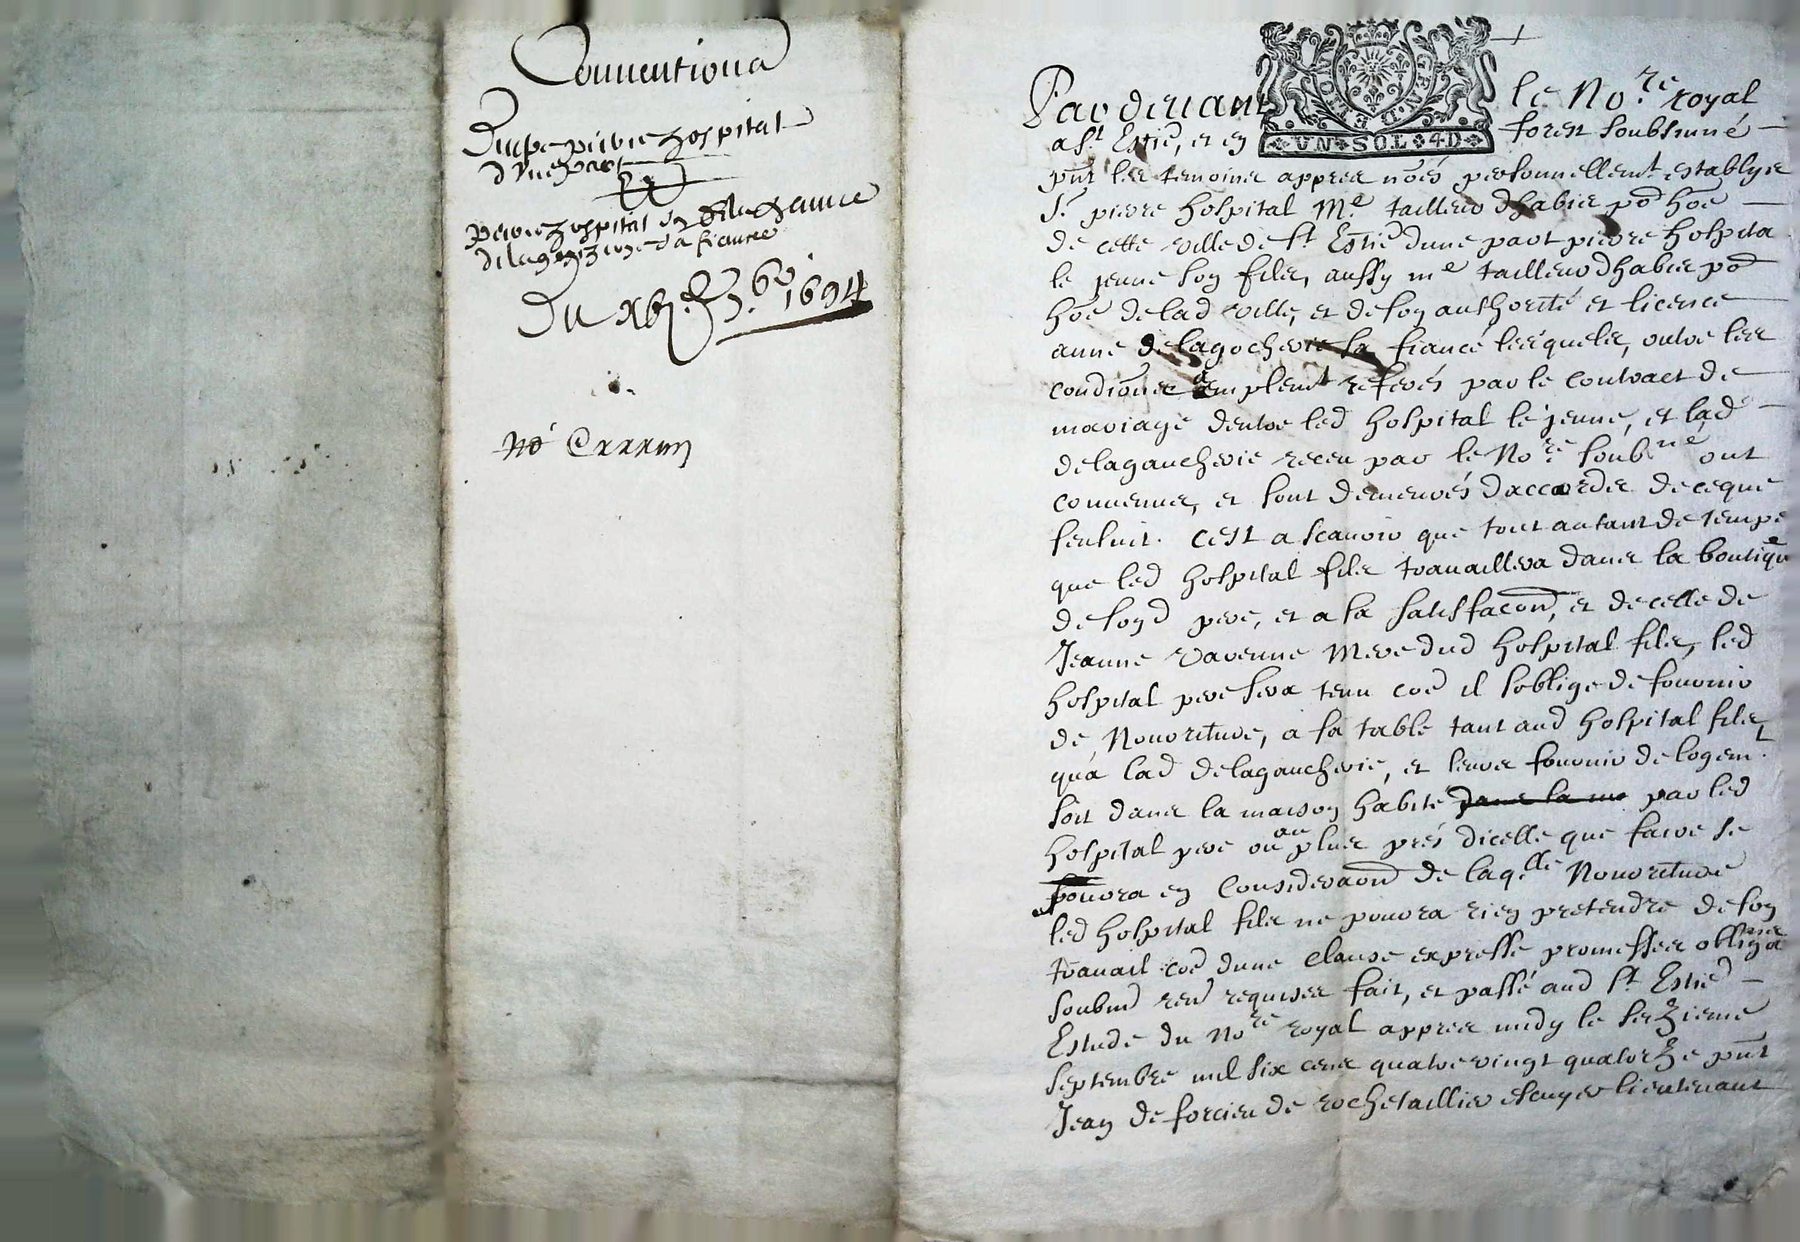 Conventions
Entre pierre hospital
d'vne part
pierre hospital et
de sa fiancée
Du xbj.e 7.bre 1694
No Cxxxxiij
Pardeuant le No.re royal
a St Estie, et en forest soubsiné
pnt les temoins appres nōés personnellemt establys
Sr pierre hospital Me tailleur dhabis pōd hōe
de cette ville de St Estie dune part pierre hospital
le jeune son fils, aussy me tailleur dhabis pōd
hōe de lad ville, et de son authorité et licence
anne delagocherie sa fiancé lesquels, outre les
condiōnes amplemt referés par le contract de
mariage dentre led hospital le jeune, et lad
delagaucherie receu par le No.re soubné ont
conuenus, et sont demeurés daccordes de ce que
sensuit. Cest a scauoir que tout autant de temps
que led hospital fils trauaillera dans la boutique
de sond pere, et a sa satisfacōn, et de celle de
Jeanne Varenne mere dud hospital fils, led
hospital pere sera tenu cōe il soblige de fournir
de Nourriture, a sa table tant aud hospital fils,
qu'a lad delagaucherie, et leurs fournir de logemt
soit dans la maison habité dans la me par led
hospital pere ou au plus prés dicelle que faire se
pourra en Consideraōn de laq.lle Nourriture
led hospital fils ne pourra rien pretendre de son
trauail cōe dune clause expresse promesses obliga
soubmd rend requises fait, et passé aud St Estie
Estude du No.re royal appres midy le seizieme
septembre mil six cens quatre vingt quatorze pnt
Jean de forcieu de rochetaillier escuyer lieutenant
GEN. D. LION
VN SOL 4D